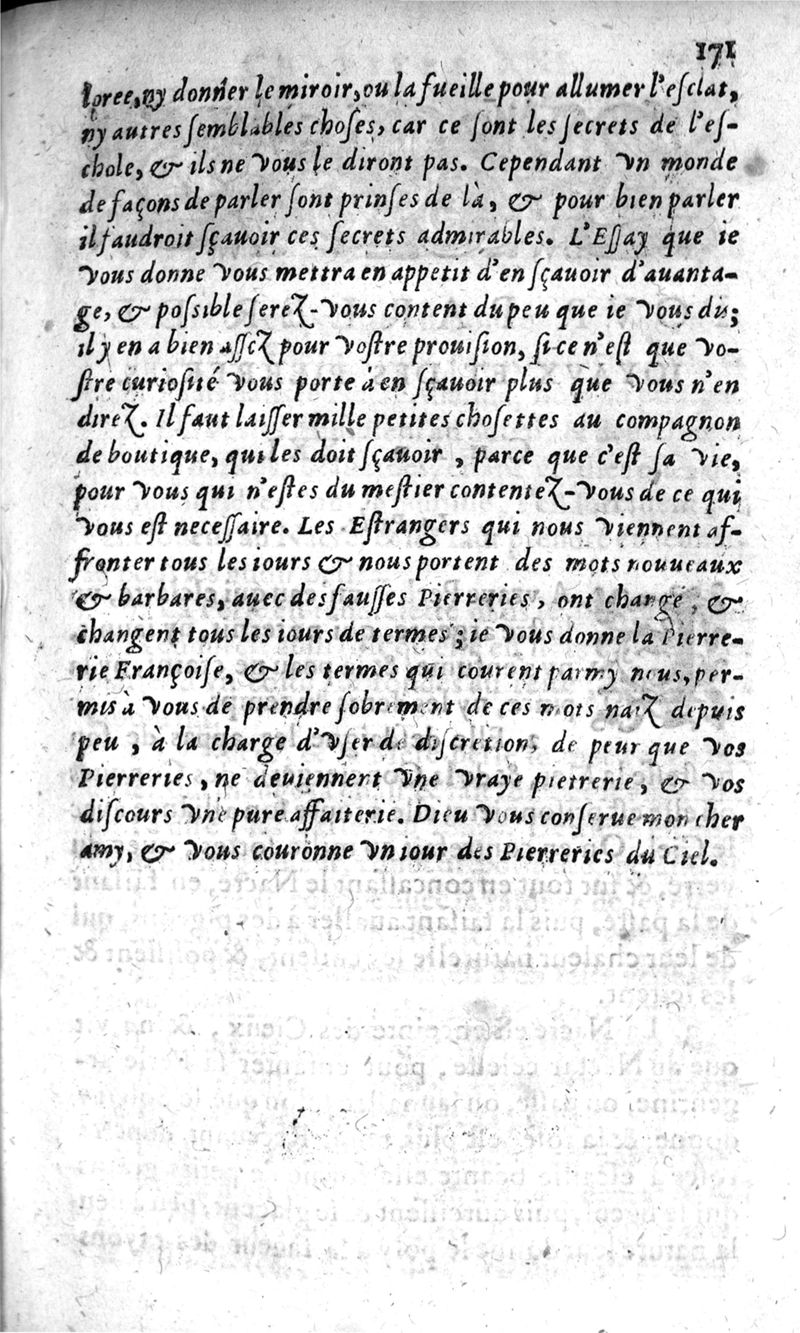 171
loree, ny donner le miroir, ou la fueille pour allumer l'esclat,
ny autres semblables choses, car ce sont les secrets de l'es-
chole, & ils ne vous le diront pas. Cependant vn monde
de façons de parler sont prinses de là, & pour bien parler
il faudroit sçauoir ces secrets admirables. L'Essay que ie
vous donne vous mettra en appetit d'en sçauoir d'auanta-
ge, & possible serez-vous content du peu que ie vous dis;
il y en a bien assez pour vostre prouision, si ce n'est que vo-
stre curiosité vous porte à en sçauoir plus que vous n'en
direz. Il faut laisser mille petites chosettes au compagnon
de boutique, qui les doit sçauoir, parce que c'est sa vie,
pour vous qui n'estes du mestier contentez-vous de ce qui
vous est necessaire. Les Estrangers qui nous viennent af-
fronter tous les iours & nous portent des mots nouueaux
& barbares, auec des fausses Pierreries, ont changé, &
changent tous les iours de termes; ie vous donne la Pierre-
rie Françoise, & les termes qui courent parmy nous, per-
mis à vous de prendre sobrement de ces mots naiz depuis
peu, à la charge d'vser de discretion, de peur que vos
Pierreries, ne deuiennent vne vraye pietrerie, & vos
discours vne pure affaiterie. Dieu vous conserue mon cher
amy, & vous couronne vn iour des Pierreries du Ciel.